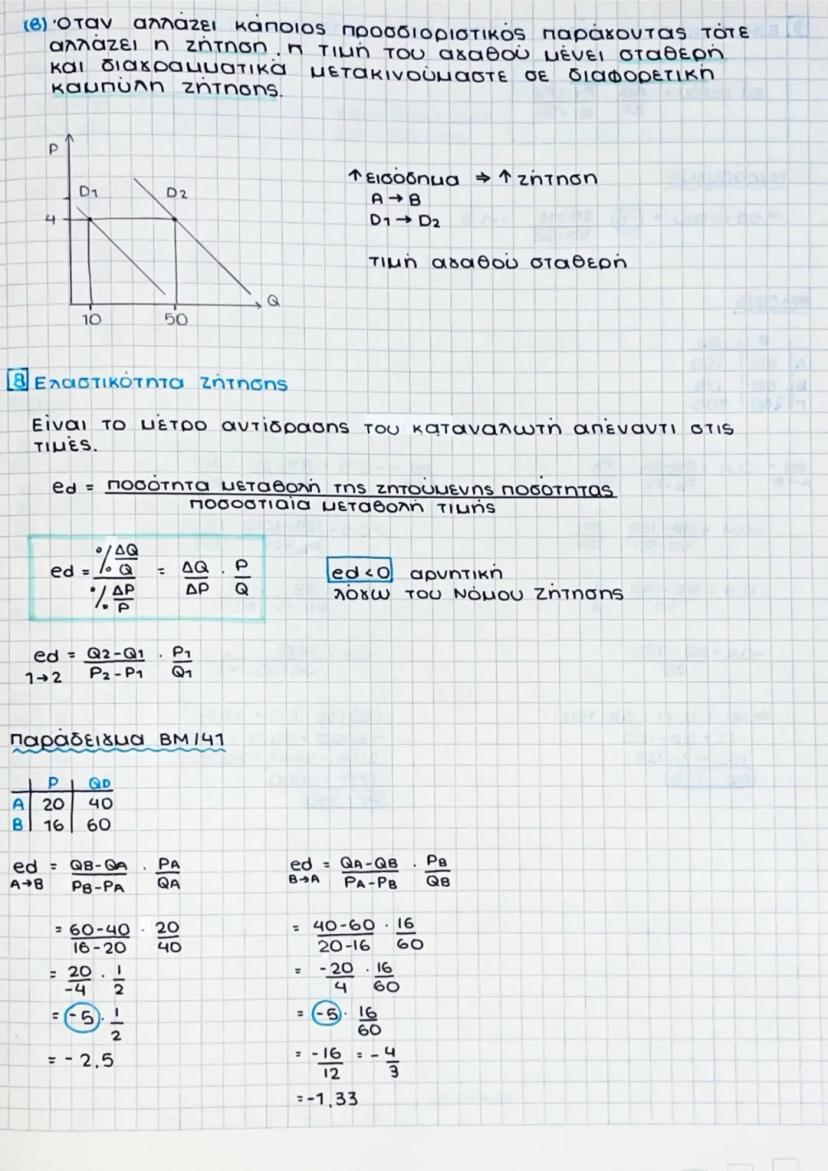 (β) Όταν αλλάζει κάποιος προσδιοριστικός παράγοντας τότε
αλλάζει η ζήτηση, η τιμή του αγαθού μένει σταθερή
και διαγραμματικά μετακινούμαστε σε διαφορετική
καμπύλη ζήτησης.
P
D1 D2
4
10 50 Q
↑ εισόδημα ⇒ ↑ ζήτηση
A → B
D1 → D2
τιμή αγαθού σταθερή
8 Ελαστικότητα ζήτησης
Είναι το μέτρο αντίδρασης του καταναλωτή απέναντι στις
τιμές.
ed = ποσότητα μεταβολή της ζητούμενης ποσότητας / ποσοστιαία μεταβολή τιμής
ed = (% ΔQ/Q) / (% ΔP/P) = ΔQ/ΔP · P/Q
ed < 0 αρνητική
λόγω του Νόμου Ζήτησης
ed 1→2 = Q2-Q1 / P2-P1 · P1/Q1
Παράδειγμα ΒΜ/41
P QD
A 20 40
B 16 60
ed A→B = QB-QA / PB-PA · PA/QA
= 60-40 / 16-20 · 20/40
= 20/-4 · 1/2
= -5 · 1/2
= -2,5
ed B→A = QA-QB / PA-PB · PB/QB
= 40-60 / 20-16 · 16/60
= -20/4 · 16/60
= -5 · 16/60
= -16/12 = -4/3
= -1,33